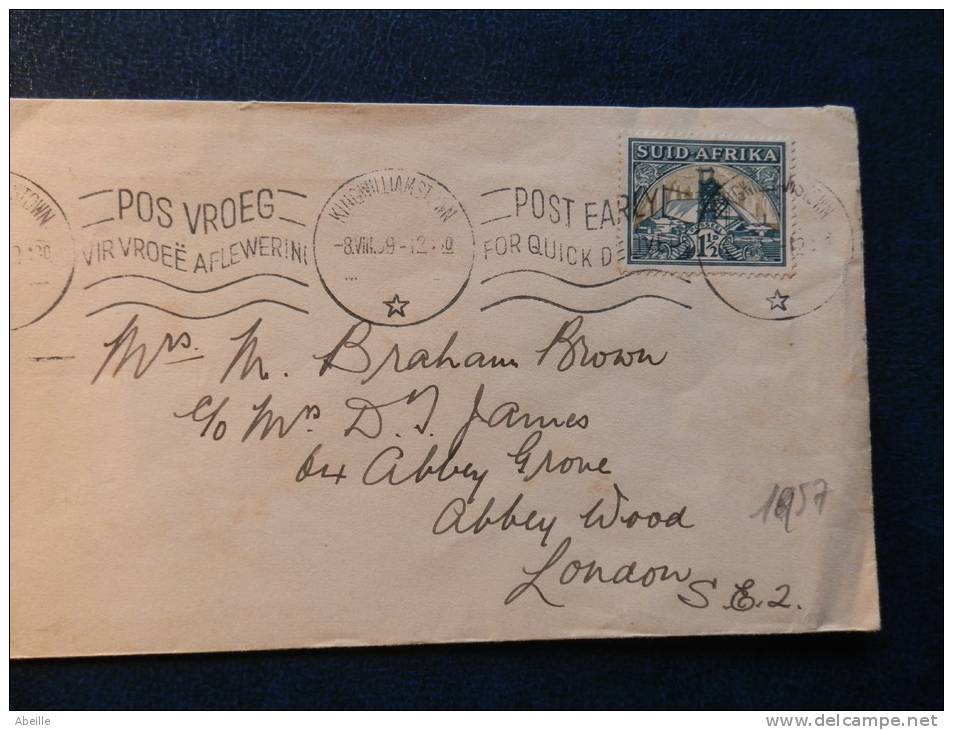 POS VROEG
VIR VROEË AFLEWERING
KINGWILLIAMSTOWN
-8.VIII.39-12
POST EARLY
FOR QUICK DELIVE
SUID-AFRIKA
1½
Mrs. M. Braham Brown
c/o Mrs D. J. James
64 Abbey Grove
Abbey Wood
London S.E.2.
1957
Abeille
www.delcampe.net